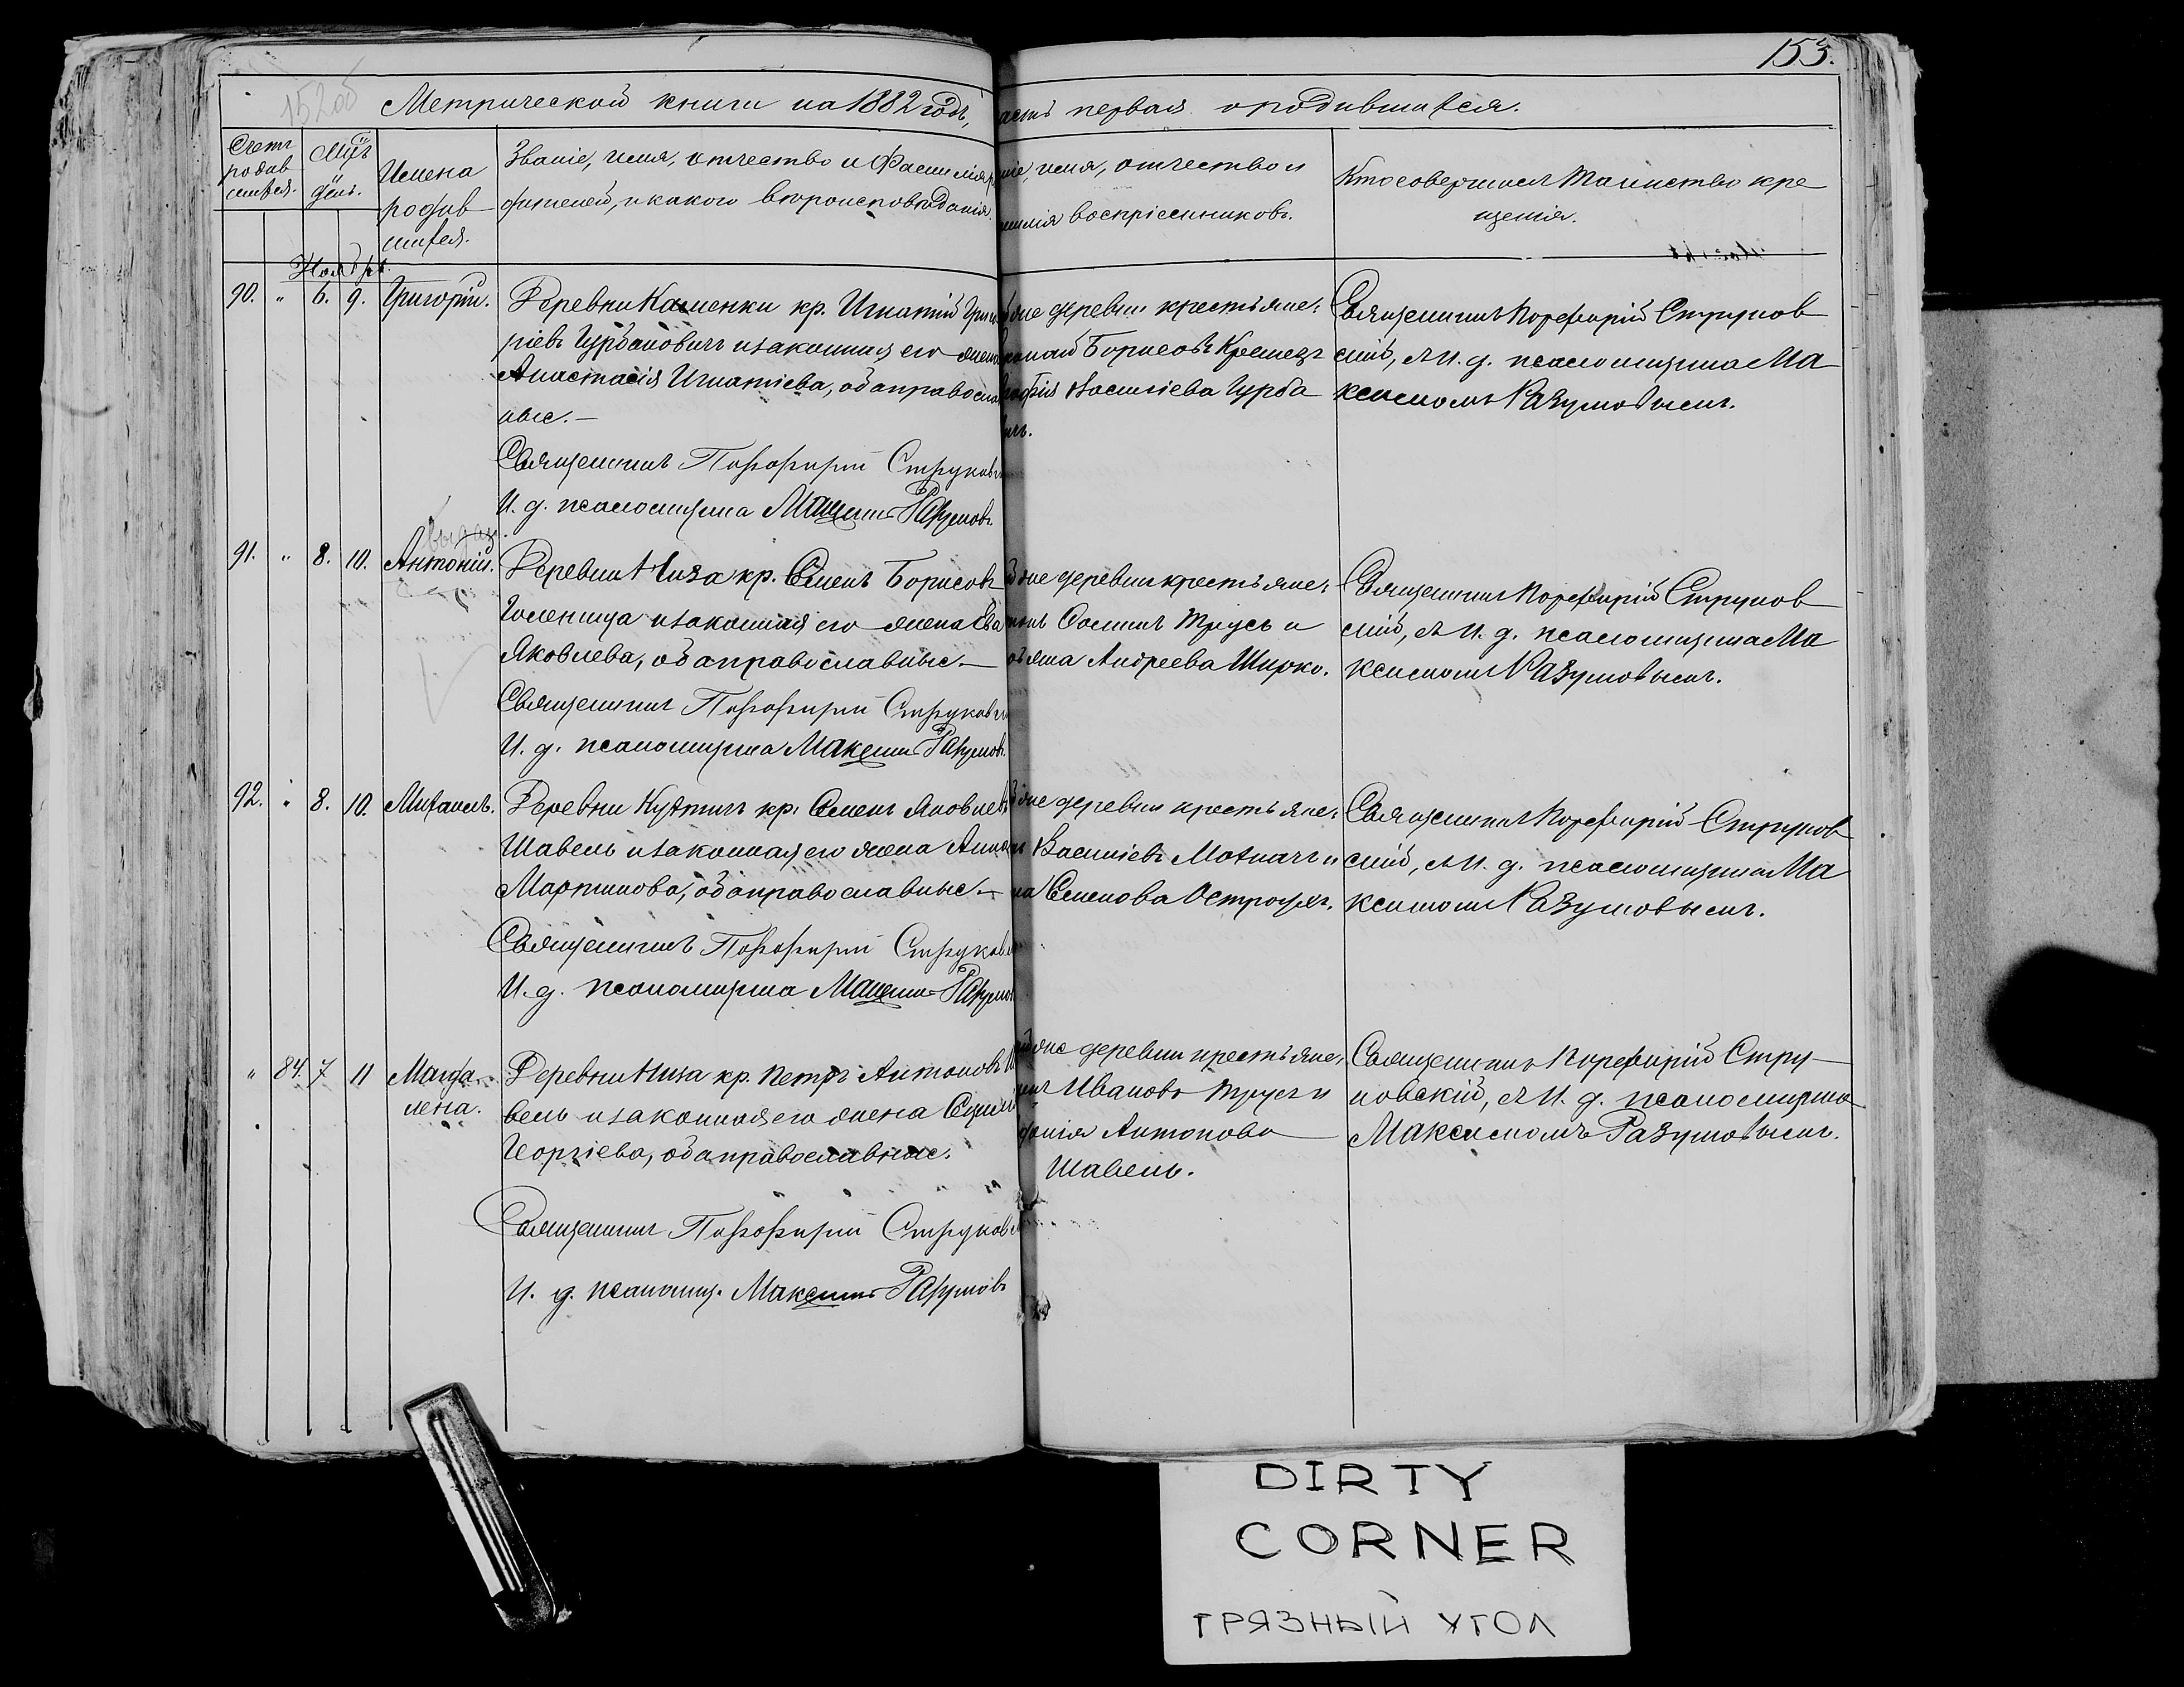 153.
152об
Метрической книги на 1882 годъ,
асть первая о родившихся.
Счетъ родившихся.
Мцъ и день.
Имена родившихся.
Званіе, имя, отчество и Фамилія
дителей, и какого вѣроисповѣданія.
ніе, имя, отчество и
милія воспріемниковъ.
Кто совершалъ таинство кре
щенія.
Ноября.
90. " 6. 9. Григорій.
Деревни Каменки кр. Игнатій Григо
ріевъ Гурбановичъ и законная его жена
Анастасія Игнатіева, оба православ
ные.—
Священникъ Порфирій Струковс
И. д. псаломщика Максимъ Разумовъ
же деревни крестьяне:
Борисовъ Кремезъ
Василіева Гурба
ичъ.
Священникъ Порфирій Струков
скій, съ И. д. псаломщика Ма
ксимомъ Разумовымъ.
выдан.
91. " 8. 10. Антоній.
Деревни Низа кр. Семенъ Борисовъ
Голеница и законная его жена Ева
Яковлева, оба православные.—
Священникъ Порфирій Струковс
И. д. псаломщика Максимъ Разумовъ.
же деревни крестьяне:
Фоминъ Трусъ и
Андреева Ширко.
Священникъ Порфирій Струков
скій, съ И. д. псаломщика Ма
ксимомъ Разумовымъ.
92. " 8. 10. Михаилъ.
Деревни Кухтичъ кр. Семенъ Яковлевъ
Шавель и законная его жена Анна
Мартинова, оба православные.—
Священникъ Порфирій Струковс
И. д. псаломщика Максимъ Разумов
же деревни крестьяне:
Василіевъ Махначъ и
на Семенова Остроухъ.
Священникъ Порфирій Струков
скій, съ И. д. псаломщика Ма
ксимомъ Разумовымъ.
" 84. 7 11 Магда
лена.
Деревни Низа кр. Петръ Антоновъ Ша
вель и законная его жена
Георгіева, оба православные.
Священникъ Порфирій Струковс
И. д. псаломщ. Максимъ Разумовъ
же деревни крестьяне:
Ивановъ Трусъ и
Антонова
Шавель.
Священникъ Порфирій Стру
ковскій, съ И. д. псаломщика
Максимомъ Разумовымъ.
DIRTY
CORNER
ГРЯЗНЫЙ УГОЛ